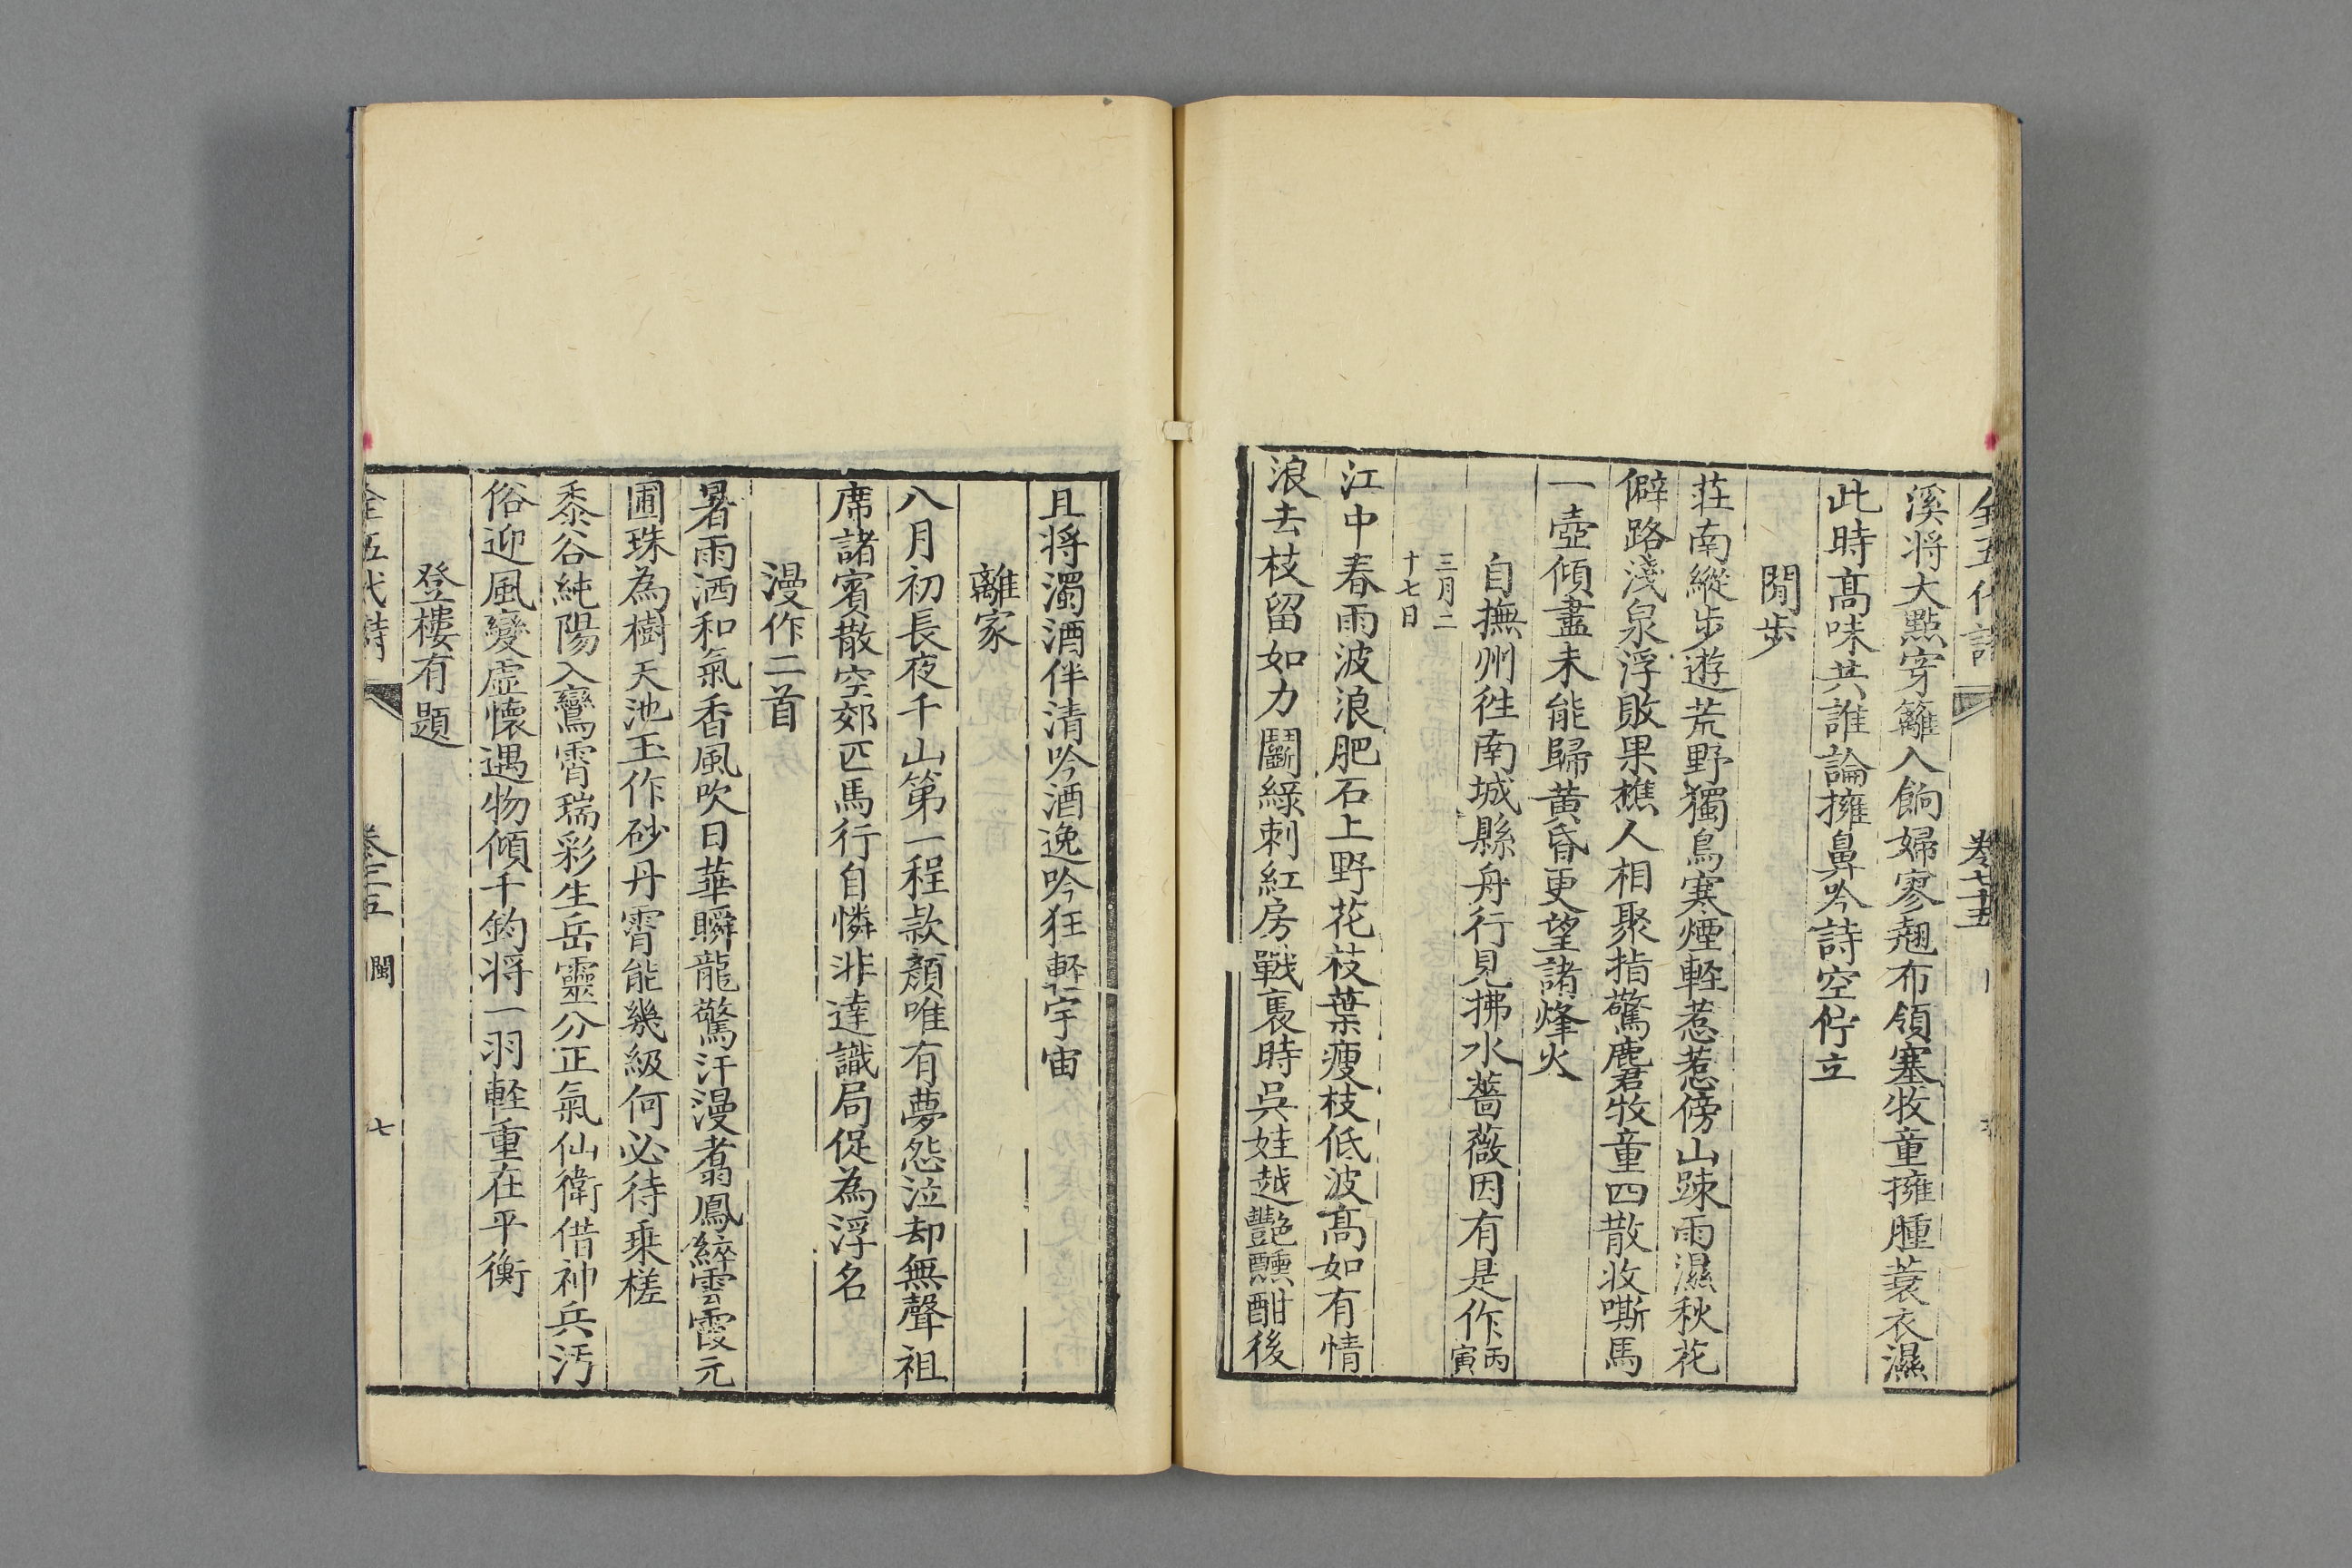 全五代詩 卷七十五
溪將大黠穿籬入餉婦寥翹布領塞牧童擁腫蓑衣濕
此時髙味共誰論擁鼻吟詩空佇立
閒步
莊南縱步遊荒野獨鳥寒煙輕惹惹傍山踈雨濕秋花
僻路淺泉浮敗果樵人相聚指驚麏牧童四散收嘶馬
一壺傾盡未能歸黃昏更望諸烽火
自撫州徃南城縣舟行見拂水薔薇因有是作丙寅
三月二
十七日
江中春雨波浪肥石上野花枝葉瘦枝低波髙如有情
浪去枝留如力鬬綠刺紅房戰裛時吳娃越艷醺酣後
且將濁酒伴清吟酒逸吟狂輕宇宙
離家
八月初長夜千山第一程款顏唯有夢怨泣却無聲祖
席諸賓散空郊匹馬行自憐非達識局促為浮名
漫作二首
暑雨洒和氣香風吹日華瞬龍驚汗漫翥鳳綷雲霞元
圃珠為樹天池玉作砂丹霄能幾級何必待乗槎
黍谷純陽入鸞霄瑞彩生岳靈分正氣仙衛借神兵汚
俗迎風變虛懷遇物傾千鈞將一羽輕重在平衡
登樓有題
全五代詩 閩 七